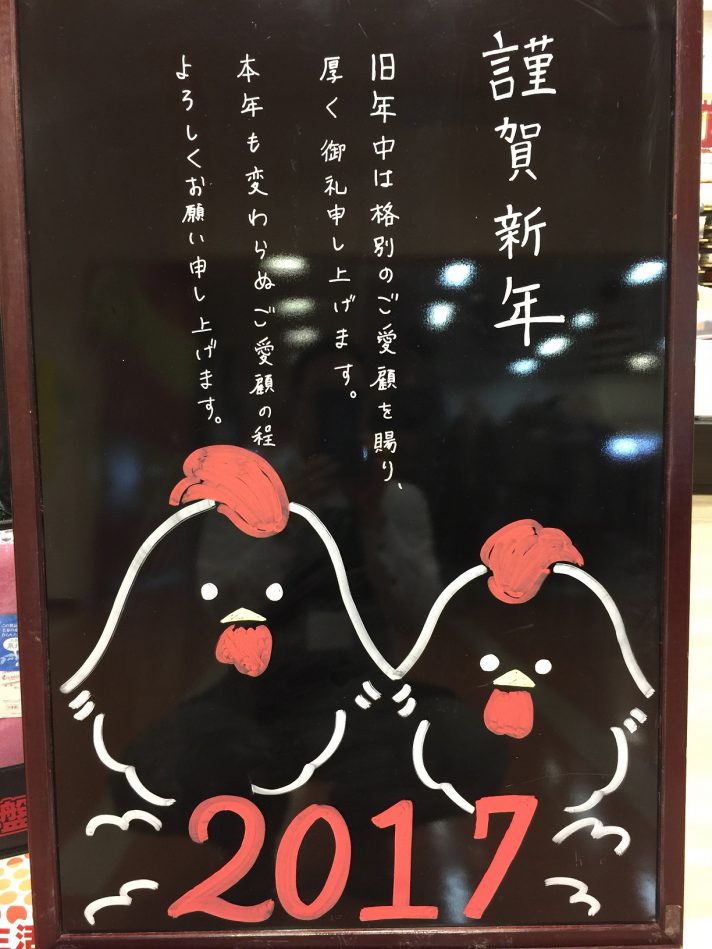 謹賀新年
旧年中は格別のご愛顧を賜り、
厚く御礼申し上げます。
本年も変わらぬご愛顧の程
よろしくお願い申し上げます。
2017